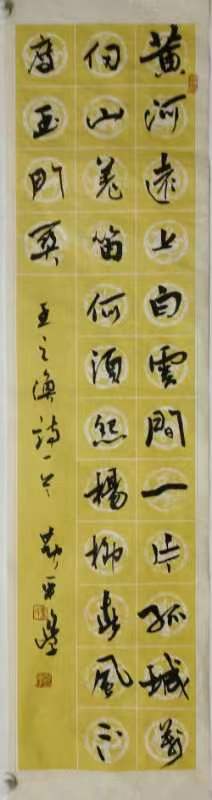 黄河远上白云間一片孤城萬
仞山羌笛何須怨楊柳春風不
度玉門関
王之渙詩一首